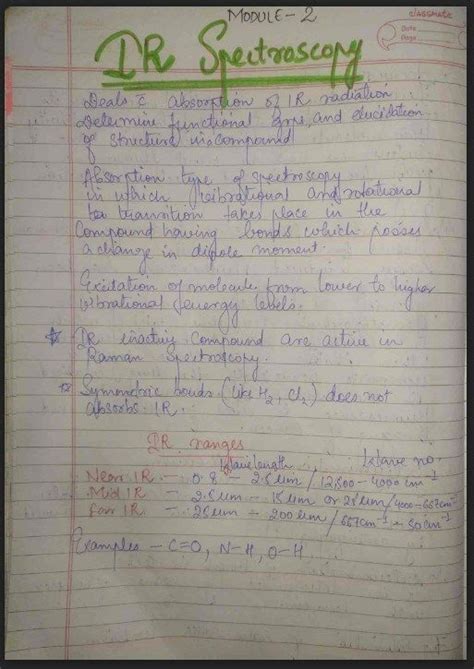 MODULE - 2
classmate
Date
Page
IR Spectroscopy
Deals c̄ absorption of IR radiation
Determine functional grps, and elucidation
of structure in compound
Absorption type of spectroscopy
in which vibrational and rotational
transition takes place in the
compound having bonds which posses
a change in dipole moment.
Exitation of molecule from lower to higher
vibrational energy levels.
IR inactive compound are active in
Raman spectroscopy.
Symmetric bonds (like H2, Cl2) does not
absorbs IR.
IR ranges
Wavelength Wave no.
Near IR - 0.8 - 2.5 μm / 12,500 - 4000 cm-1
Mid IR - 2.5 μm - 15 μm or 25 μm / 4000 - 667 cm-1
Far IR - 25 μm - 200 μm / 667 cm-1 - 50 cm-1
Examples - C=O, N-H, O-H